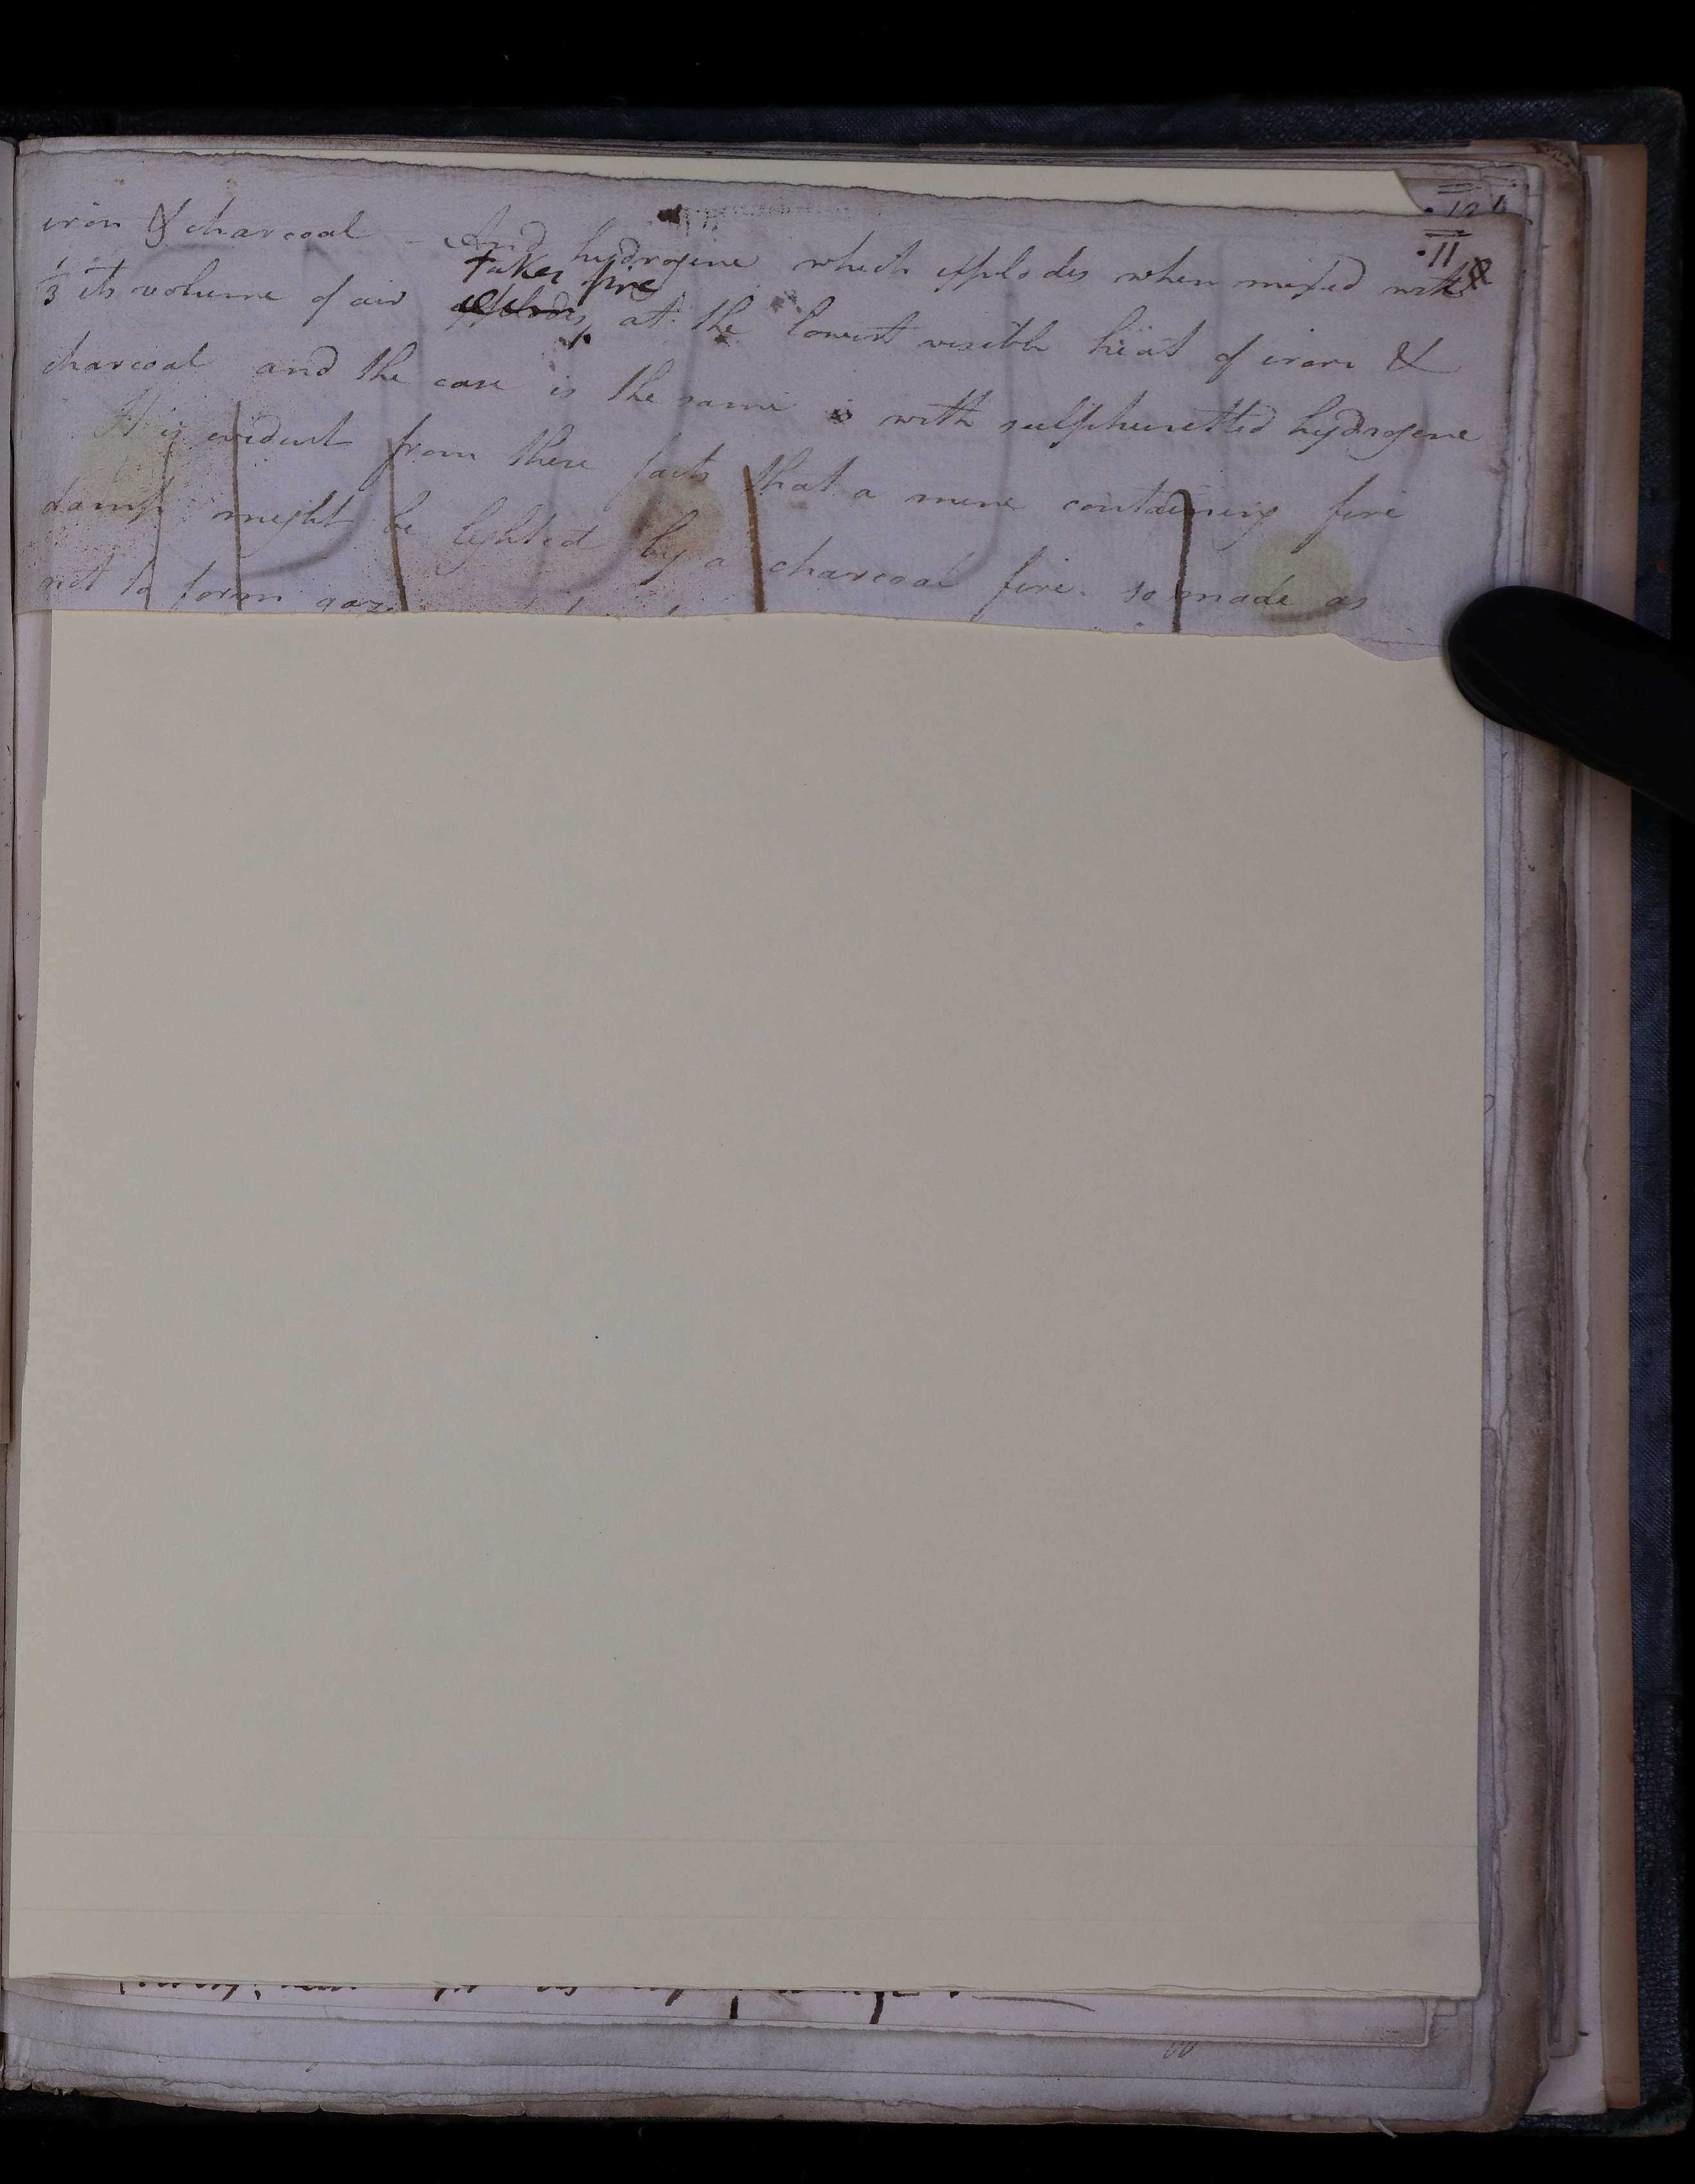 11
iron & charcoal - And hydrogene which explodes when mixed with
takes fire
1/3 its volume of air explodes at the lowest visible heat of iron &
charcoal and the case is the same is with sulphuretted hydrogene
It is evident from these facts that a mine containing fire
damp might be lighted by a charcoal fire. so made as
not to form gaz